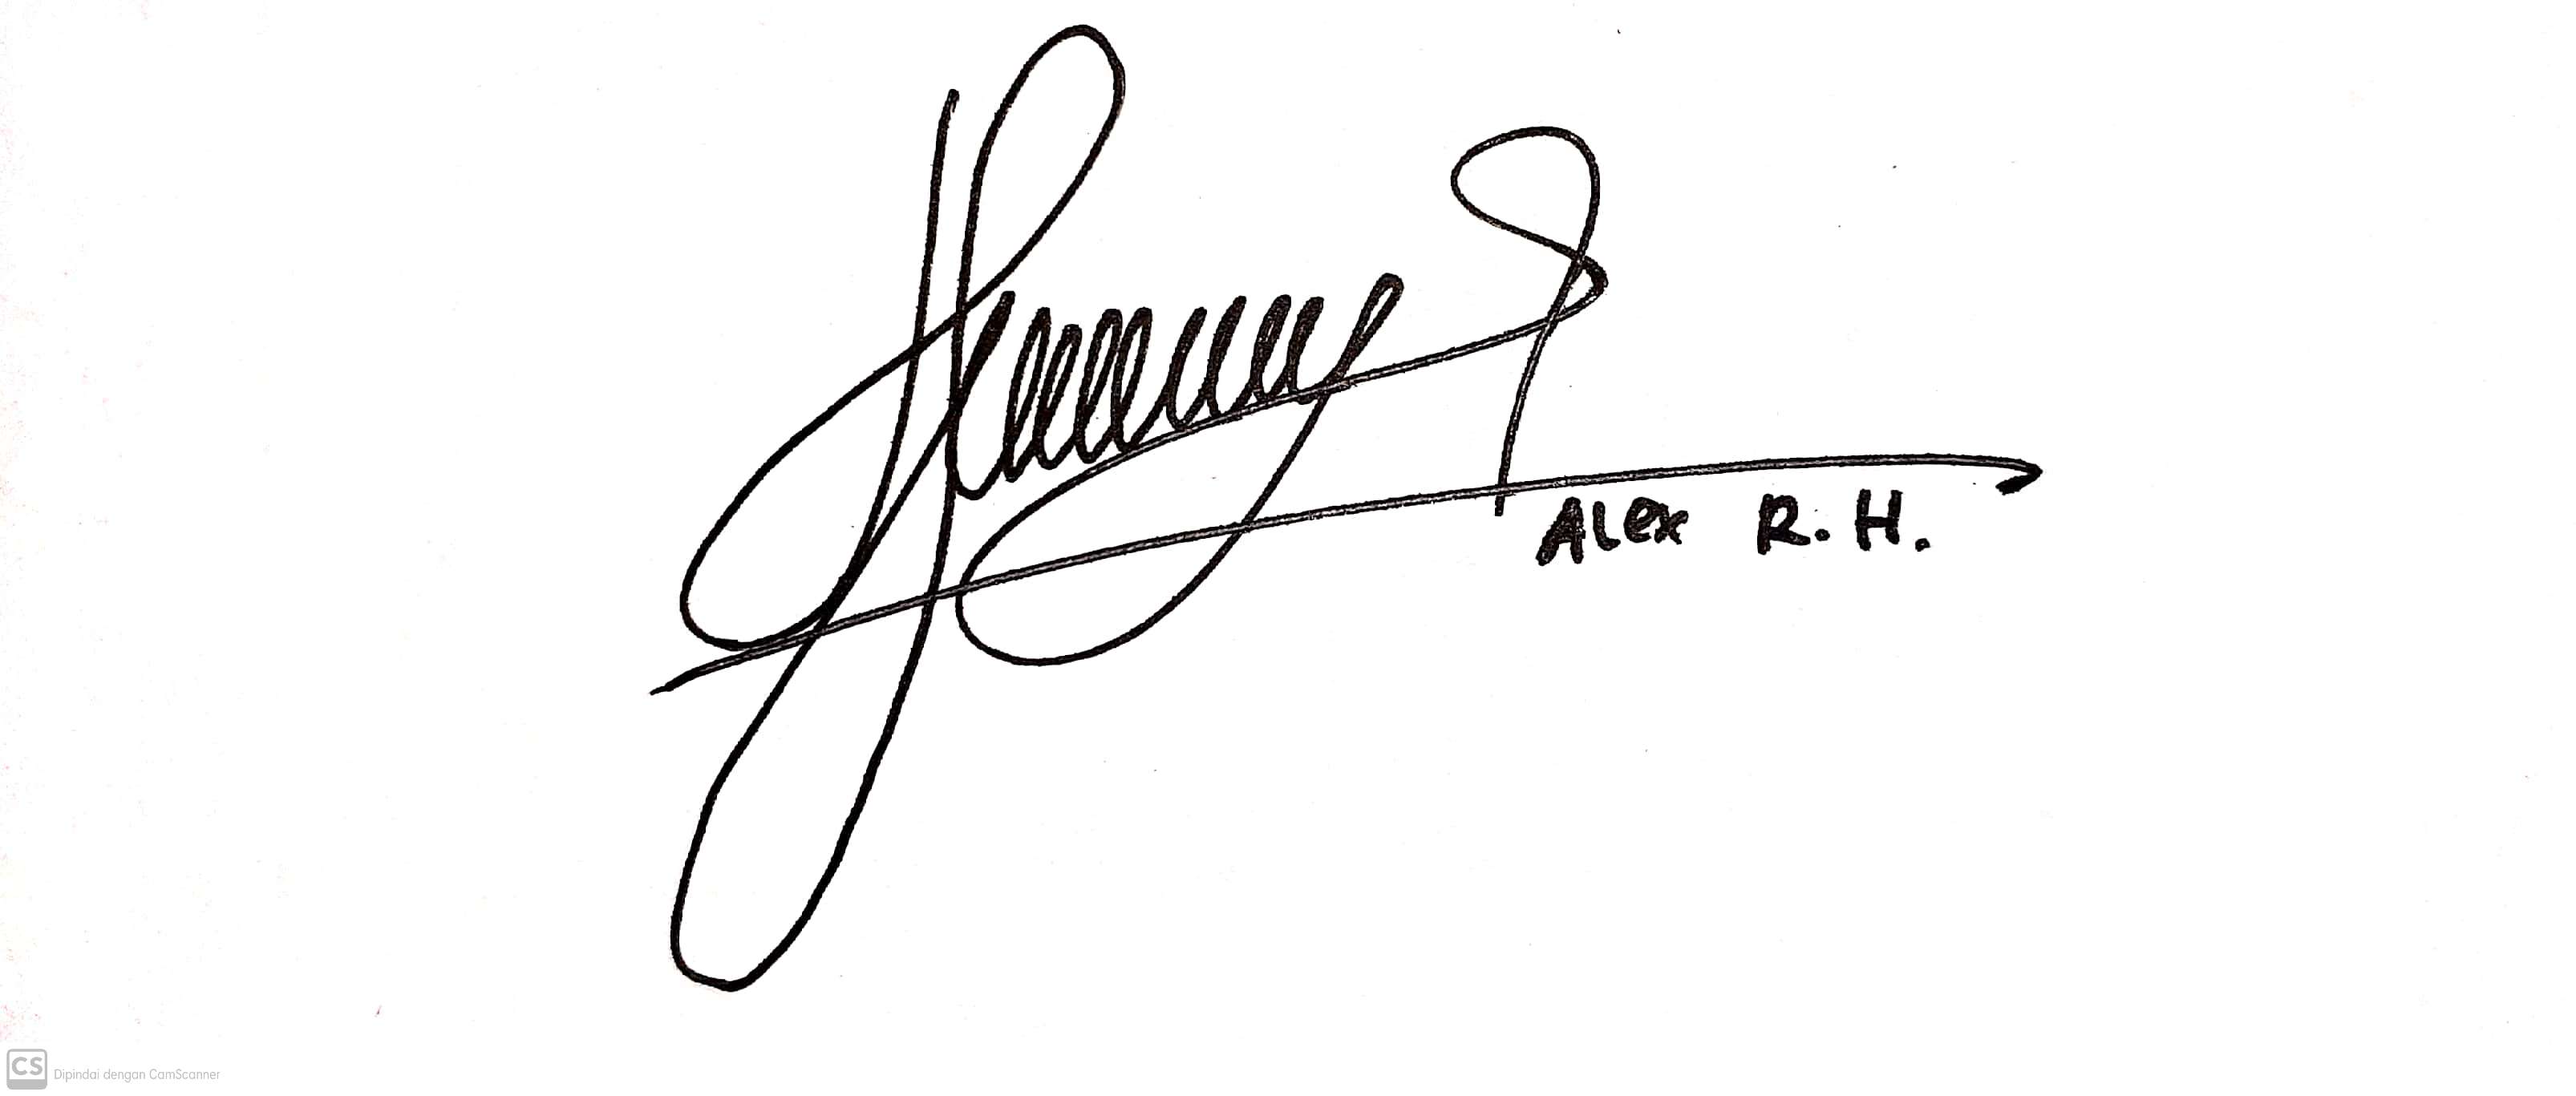 ALEX R.H.
CS Dipindai dengan CamScanner